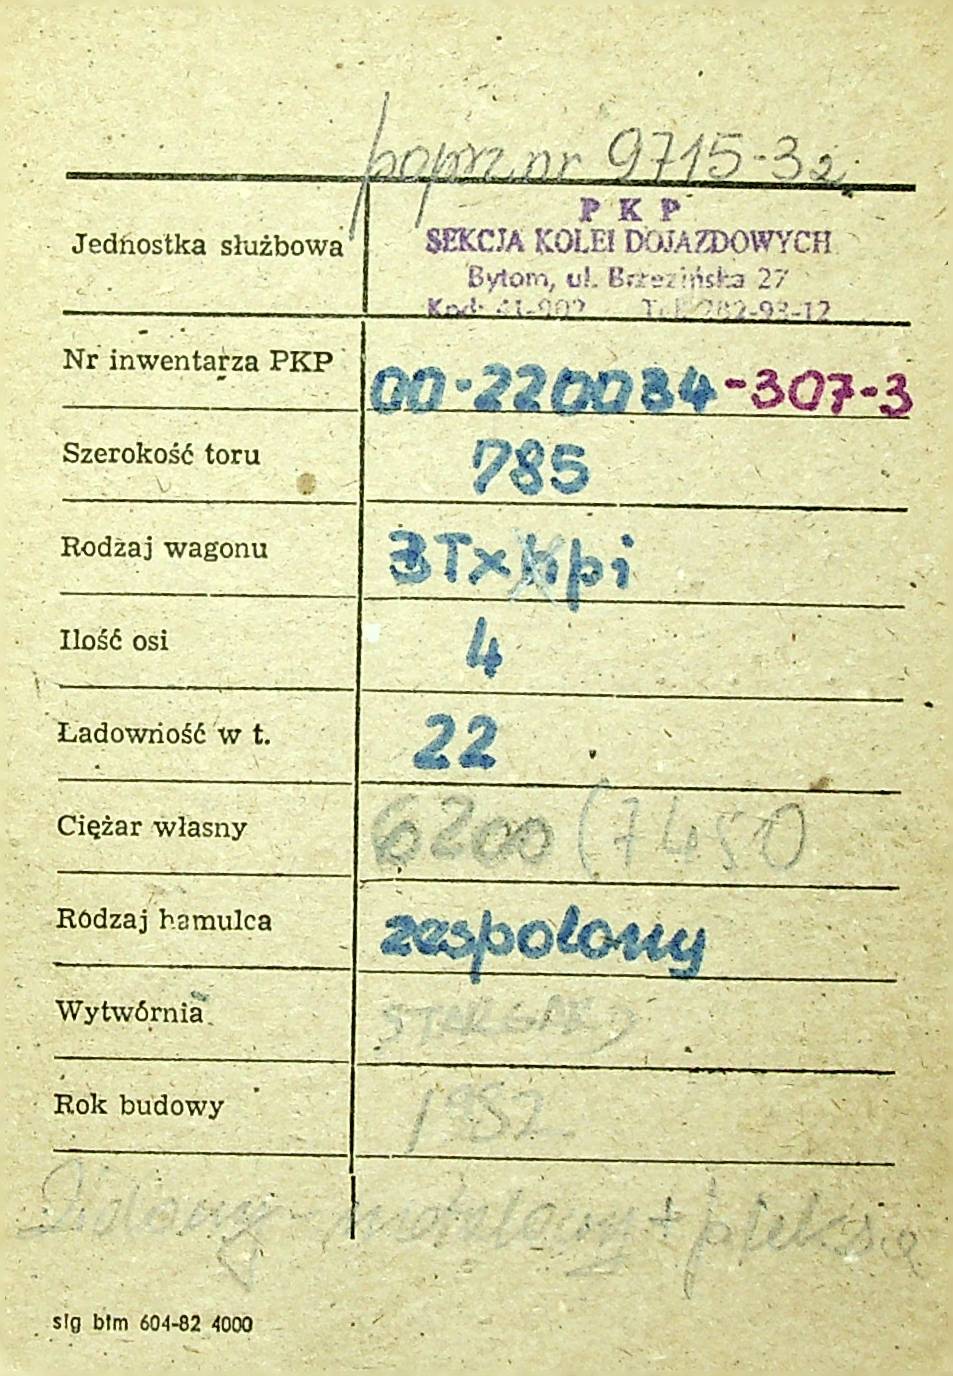 poprz. nr 9715-32
P K P
Jednostka służbowa SEKCJA KOLEI DOJAZDOWYCH
Bytom, ul. Brzezińska 27
Kod: 41-902 Tel. 282-93-12
Nr inwentarza PKP 00-220034-307-3
Szerokość toru 785
Rodzaj wagonu 3Txhpi
Ilość osi 4
Ładowność w t. 22
Ciężar własny 6200 (7450
Rodzaj hamulca zespolony
Wytwórnia STARGARD
Rok budowy 1952
+
stg btm 604-82 4000